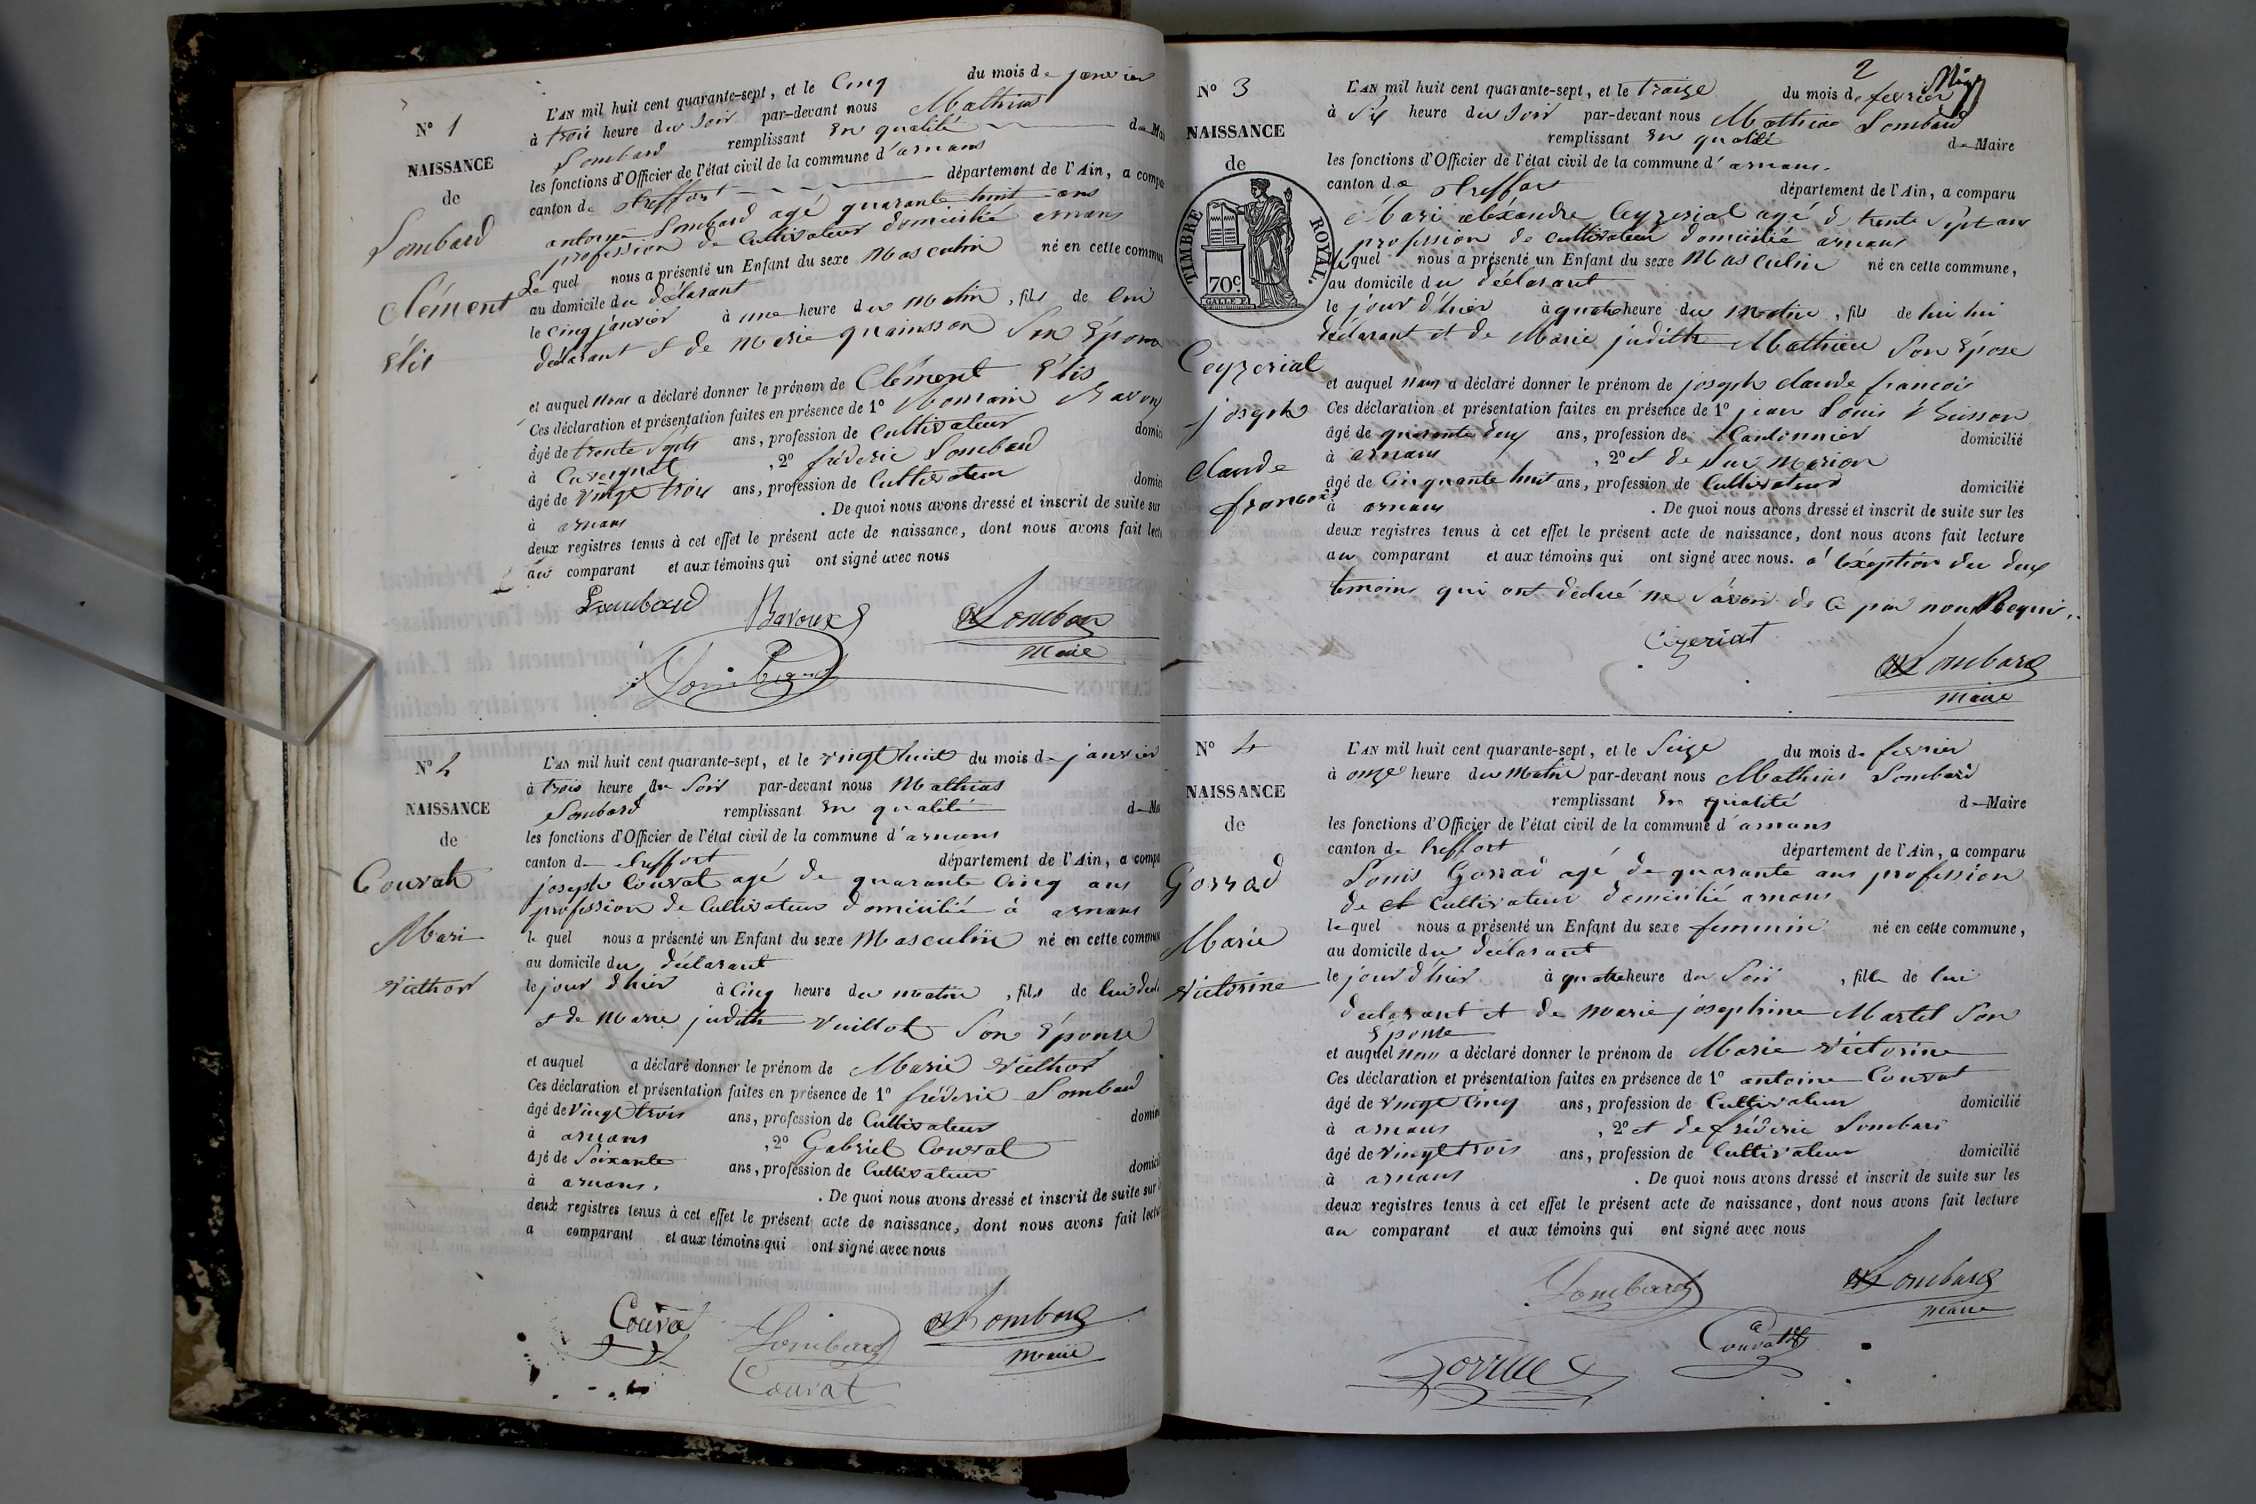 N° 1
NAISSANCE
de
Lombard
Clément
Élis
L'AN mil huit cent quarante-sept, et le Cinq du mois de janvier
à trois heure du Soir par-devant nous Mathias
Lombard remplissant En qualité de Mai
les fonctions d'Officier de l'état civil de la commune d'arnans
canton de treffort département de l'Ain, a compa
antoine Lombard agé quarante huit ans
profession de Cultivateur domicilié arnans
Le quel nous a présenté un Enfant du sexe Masculin né en cette commun
au domicile du déclarant
le Cinq janvier à une heure du matin, fils de lui
déclarant & de Marie quinsson Son Épouse
et auquel nous a déclaré donner le prénom de Clément Élis
Ces déclaration et présentation faites en présence de 1° Romain Bavoux
âgé de trente Septs ans, profession de Cultivateur domici
à Corveissiat, 2° fréderic Lombard
âgé de vingt trois ans, profession de Cultivateur domici
à arnans. De quoi nous avons dressé et inscrit de suite sur
deux registres tenus à cet effet le présent acte de naissance, dont nous avons fait lectu
au comparant et aux témoins qui ont signé avec nous
Lombard Bavoux Lombard
maire
Lombard
N° 2
NAISSANCE
de
Couvat
Mari
victhor
L'AN mil huit cent quarante-sept, et le vingt huit du mois de janvier
à trois heure du Soir par-devant nous Mathias
Lombard remplissant En qualité de Ma
les fonctions d'Officier de l'état civil de la commune d'arnans
canton de treffort département de l'Ain, a compa
joseph Couvat agé de quarante Cinq ans
profession de Cultivateur domicilié à arnans
le quel nous a présenté un Enfant du sexe Masculin né en cette commun
au domicile du déclarant
le jour d'hier à Cinq heure du matin, fils de lui décla
& de Marie judith vuillot Son Épouse
et auquel a déclaré donner le prénom de Marie victhor
Ces déclaration et présentation faites en présence de 1° fréderic Lombard
âgé de vingt trois ans, profession de Cultivateur domici
à arnans, 2° Gabriel Couvat
âgé de Soixante ans, profession de Cultivateur domici
à arnans. De quoi nous avons dressé et inscrit de suite sur
deux registres tenus à cet effet le présent acte de naissance, dont nous avons fait lectu
a comparant et aux témoins qui ont signé avec nous
Couvat Lombard Lombard
maire
Couvat
2
N° 3
NAISSANCE
de
TIMBRE ROYAL.
70c.
Ceyzeriat
joseph
claude
francois
L'AN mil huit cent quarante-sept, et le traize du mois de fevrier
à Six heure du Soir par-devant nous Mathias Lombard
remplissant En qualité de Maire
les fonctions d'Officier de l'état civil de la commune d'arnans.
canton de treffort département de l'Ain, a comparu
Mari aléxandre Ceyzeriat agé de trente Sept ans
profession de cultivateur domicilié arnans
Le quel nous a présenté un Enfant du sexe Masculin né en cette commune,
au domicile du déclarant
le jour d'hier à quatre heure du matin, fils de lui lui
déclarant et de Marie judith Mathieu Son Épose
et auquel nous a déclaré donner le prénom de joseph claude francois
Ces déclaration et présentation faites en présence de 1° jean Louis
âgé de quarante deux ans, profession de Cantonnier domicilié
à arnans, 2° et de Marion
âgé de Cinquante huit ans, profession de Cultivateur domicilié
à arnans. De quoi nous avons dressé et inscrit de suite sur les
deux registres tenus à cet effet le présent acte de naissance, dont nous avons fait lecture
au comparant et aux témoins qui ont signé avec nous. a l'éxeption du deux
temoins qui ont déclaré ne Savoir de Ce par nous Requi.
Ceyzeriat
Lombard
maire
N° 4
NAISSANCE
de
Gorrad
Marie
victorine
L'AN mil huit cent quarante-sept, et le Seize du mois de fevrier
à onze heure du Matin par-devant nous Mathias Lombard
remplissant En qualité de Maire
les fonctions d'Officier de l'état civil de la commune d'arnans
canton de treffort département de l'Ain, a comparu
Louis Gorrad agé de quarante ans profession
de cultivateur domicilié arnans
le quel nous a présenté un Enfant du sexe feminin né en cette commune,
au domicile du déclarant
le jour d'hier à quatre heure du Soir, fille de lui
déclarant et de marie josephine Martel Son
Épouse
et auquel nous a déclaré donner le prénom de Marie victorine
Ces déclaration et présentation faites en présence de 1° antoine Couvat
âgé de vingt Cinq ans, profession de Cultivateur domicilié
à arnans, 2° et de fréderic Lombard
âgé de vingt trois ans, profession de Cultivateur domicilié
à arnans. De quoi nous avons dressé et inscrit de suite sur les
deux registres tenus à cet effet le présent acte de naissance, dont nous avons fait lecture
au comparant et aux témoins qui ont signé avec nous
Lombard Lombard
maire
Couvat